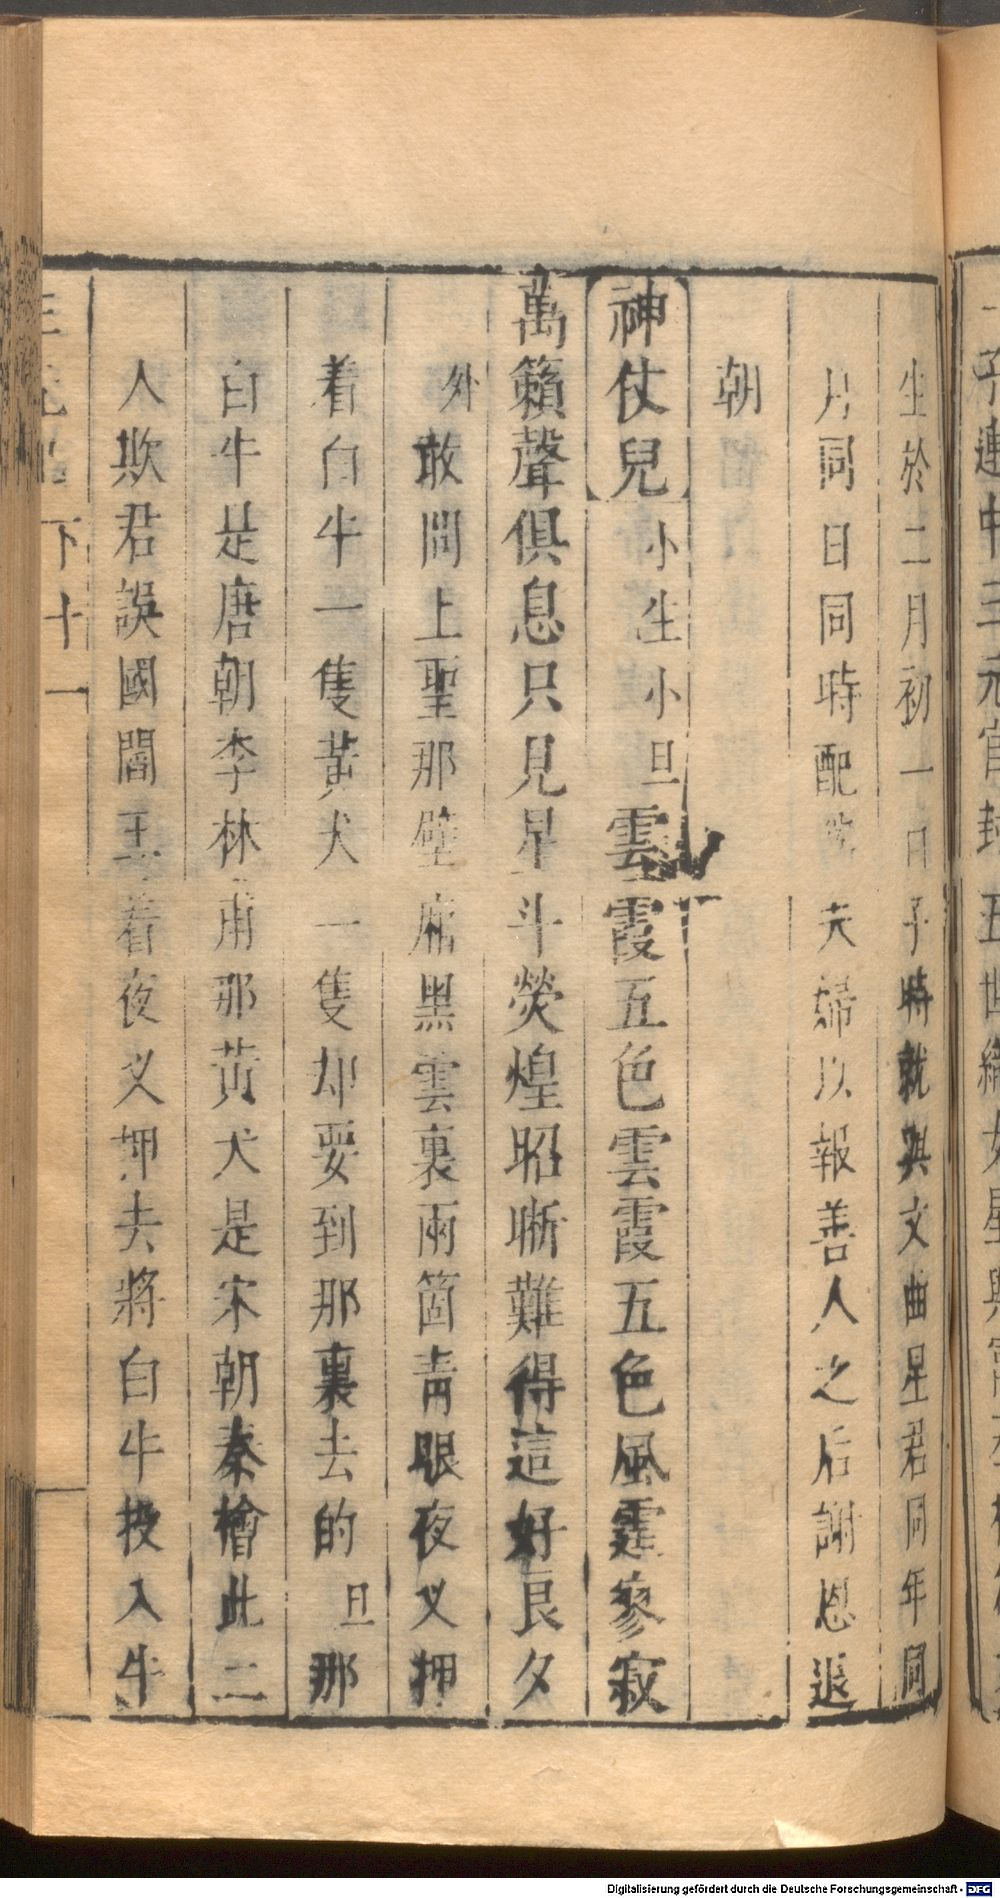 生於二月初一日子時就與文曲星君同年同
月同日同時配為夫婦以報善人之后謝恩退
朝
神仗兒 小生小旦 雲霞五色雲霞五色風霆寥寂
萬籟聲俱息只見星斗熒煌昭晰難得這好良夕
外 敢問上聖那壁廂黑雲裏兩箇青眼夜叉押
着白牛一隻黃犬一隻却要到那裏去的 旦 那
白牛是唐朝李林甫那黃犬是宋朝秦檜此二
人欺君誤國閻王着夜叉押去將白牛投入牛
下 十一
Digitalisierung gefördert durch die Deutsche Forschungsgemeinschaft - DFG